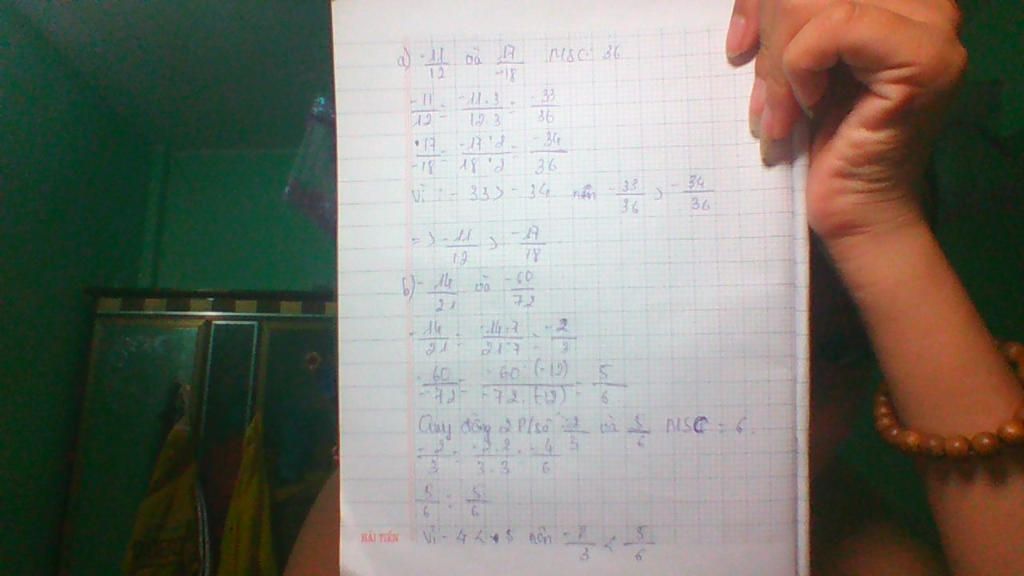 a) -11/12 và 17/-18 MSC: 36
-11/12 = -11.3/12.3 = -33/36
17/-18 = -17.2/18.2 = -34/36
Vì -33 > -34 nên -33/36 > -34/36
=> -11/12 > -17/18
b) -14/21 và -60/-72
-14/21 = -14:7/21:7 = -2/3
-60/-72 = -60:(-12)/-72:(-12) = 5/6
Quy đồng 2 P/số -2/3 và 5/6 MSC = 6.
-2/3 = -2.2/3.3 = -4/6
5/6 = 5/6
Vì -4 < 5 nên -2/3 < 5/6
HẢI TIẾN